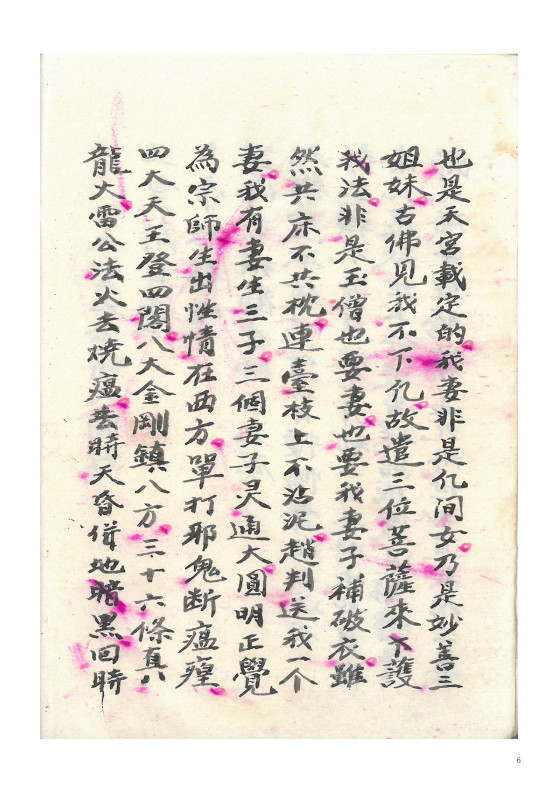 也是天宮載定的我妻非是凢间女乃是妙善三
姐妹古佛見我不下凢故遣三位菩薩來下護
我法非是玉僧也要妻也要我妻子補破衣雖
然共床不共枕連臺枝上不沾泥趙判送我一个
妻我有妻生三子三個妻子灵通大圓明正覺
為宗師生出性情在西方單打邪鬼断瘟瘟
四大天王登四閣八大金剛鎮八方三十六條真
龍火雷公法火去燒瘟去時天昏併地暗黑回時
6